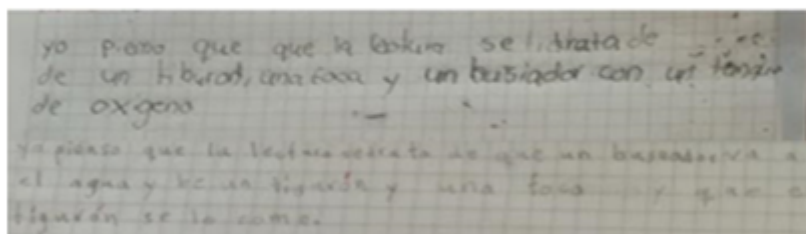 yo pienso que que la lectura se trata de
de un tiburon, una foca y un busiador con un tanque
de oxgeno
yo pienso que la lectura se trata de que un buseador va a
el agua y ve un tigurón y una foca y que e
tigurón se lo come.